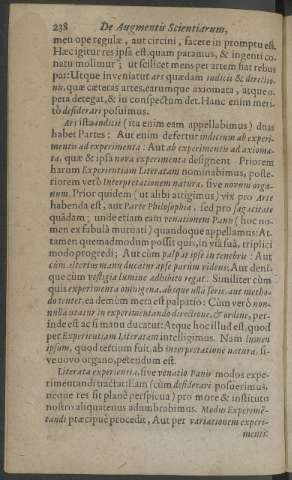 238 De Augmentis Scientiarum,
meu ope regulæ, aut circini, facere in promptu est.
Hæc igitur res ipsa est, quam paramus, & ingenti co-
natu molimur; ut scilicet mens per artem fiat rebus
par: Utque inveniatur ars quædam indicii & directio-
nis, quæ cæteras artes, earumque axiomata, atque o-
pera detegat, & in conspectum det. Hanc enim meri-
tò desiderari posuimus.
Ars ista indicii (ita enim eam appellabimus) duas
habet Partes: Aut enim defertur indicium ab experi-
mentis ad experimenta: Aut ab experimentis ad axioma-
ta, quæ & ipsa nova experimenta designent Priorem
harum Experientiam Literatam nominabimus, poste-
riorem verò Interpretationem naturæ, sive novum orga-
num. Prior quidem (ut alibi attigimus) vix pro Arte
habenda est, aut Parte Philosophiæ, sed pro sagacitate
quâdam; unde etiam eam venationem Panis (hoc no-
men ex fabulâ mutuati) quandoque appellamus: At-
tamen quemadmodum possit quis, in viâ suâ, triplici
modo progredi; Aut cùm palpat ipse in tenebris: Aut
cùm alterius manu ducatur ipse parum videns: Aut deni-
que cùm vestigia lumine adhibito regat: Similiter cùm
quis experimenta omnigena, absque ulla serie, aut metho-
do tentet, ea demùm mera est palpatio: Cùm verò non-
nulla utatur in experimentando directione, & ordine, per-
inde est ac si manu ducatur: Atque hoc illud est, quod
per Experientiam Literatam intelligimus. Nam lumen
ipsum, quod tertium fuit, ab interpretatione naturæ, si-
ve novo organo, petendum est.
Literata experientia, sive venatio Panis modos expe-
rimentandi tractat: Eam (cùm desiderari posuerimus,
neque res sit planè perspicua) pro more & instituto
nostro aliquatenus adumbrabimus. Modus Experimē-
tandi præcipuè procedit, Aut per variationem experi-
menti: